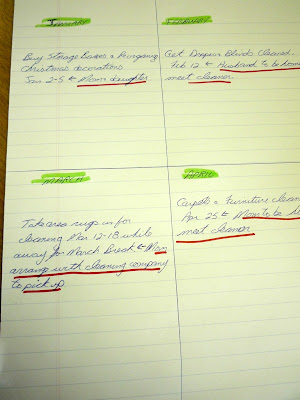 January
Buy Storage boxes & Reorganize
Christmas decorations
Jan 2-5 ← Mom daughter
February
Get Drapes Blinds Cleaned
Feb 12 ← Husband to be home
meet cleaner
MARCH
Take area rugs in for
cleaning Mar 12-18 while
away for March Break. ← Mom
arrange with cleaning company
to pick up
APRIL
Carpets & Furniture clean
Apr 25 ← Mom to be
meet cleaner